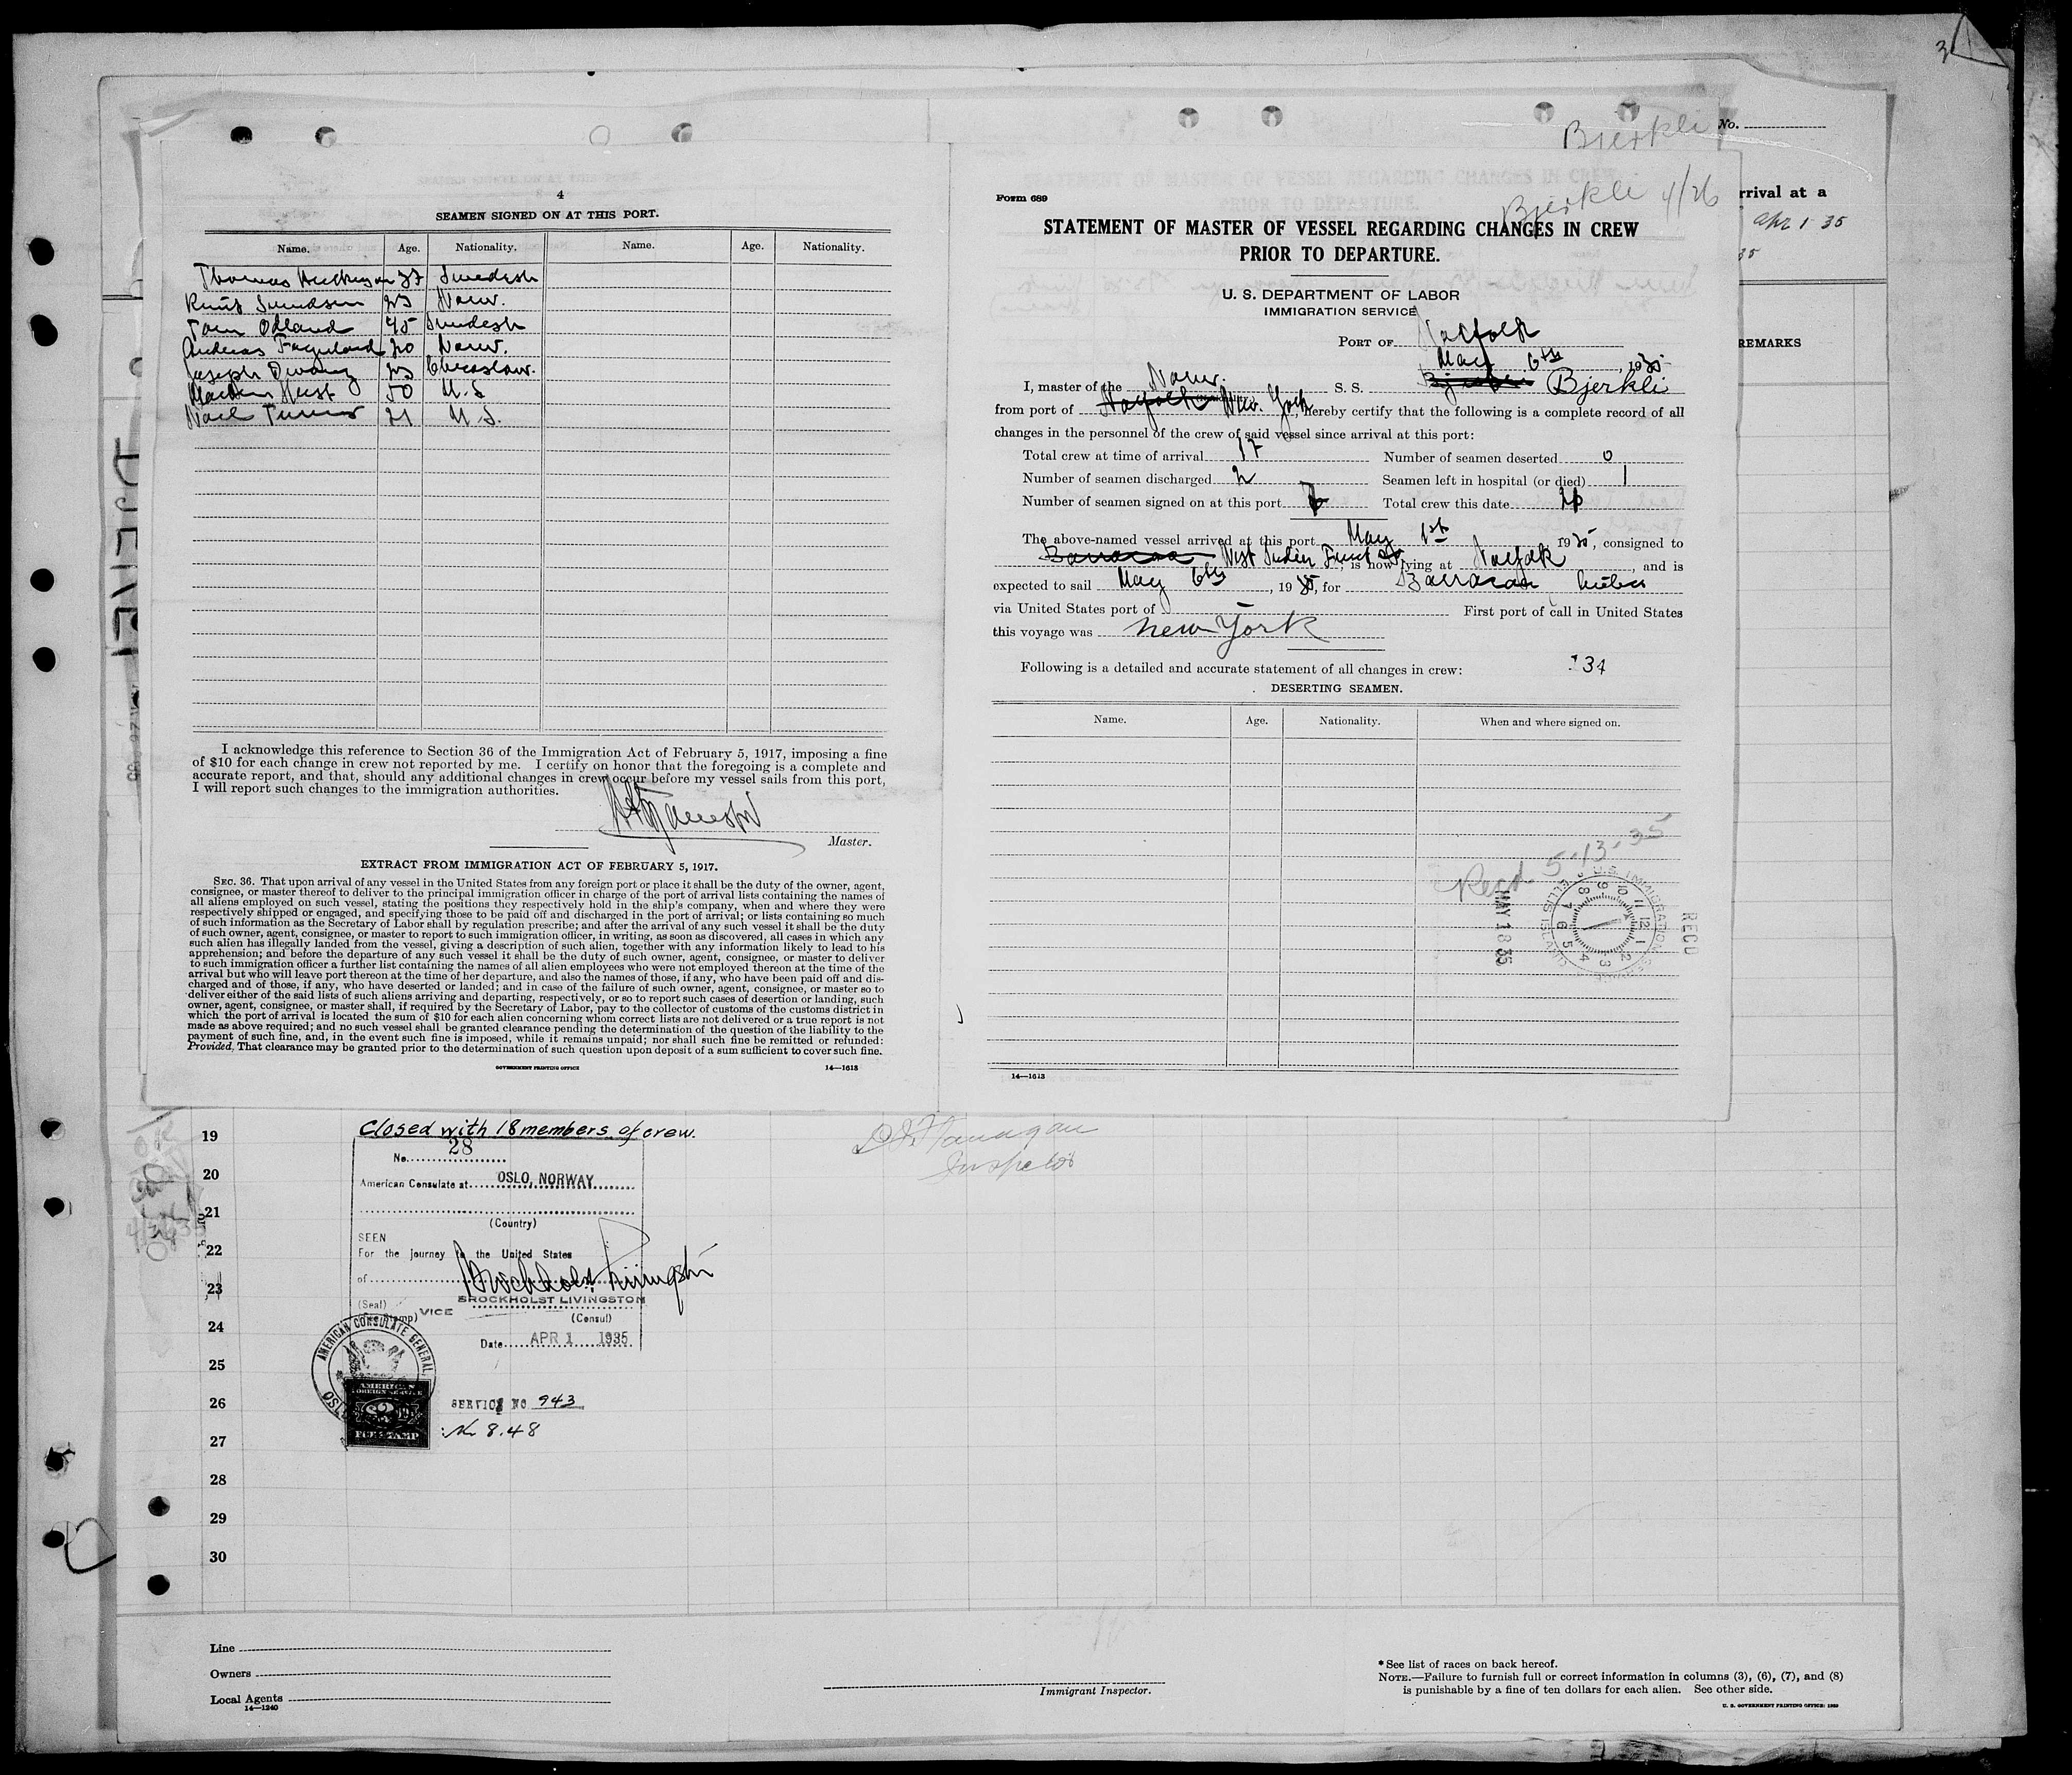 3
4
SEAMEN SIGNED ON AT THIS PORT.
Name. Age. Nationality. Name. Age. Nationality.
Thomas 37 Swedish
Knut 23 Norw.
Tom Odland 45 Swedesh
Andreas 20 Norw.
Joseph 23
50 U.S
21 U.S.
I acknowledge this reference to Section 36 of the Immigration Act of February 5, 1917, imposing a fine
of $10 for each change in crew not reported by me. I certify on honor that the foregoing is a complete and
accurate report, and that, should any additional changes in crew occur before my vessel sails from this port,
I will report such changes to the immigration authorities.
Master.
EXTRACT FROM IMMIGRATION ACT OF FEBRUARY 5, 1917.
SEC. 36. That upon arrival of any vessel in the United States from any foreign port or place it shall be the duty of the owner, agent,
consignee, or master thereof to deliver to the principal immigration officer in charge of the port of arrival lists containing the names of
all aliens employed on such vessel, stating the positions they respectively hold in the ship's company, when and where they were
respectively shipped or engaged, and specifying those to be paid off and discharged in the port of arrival; or lists containing so much
of such information as the Secretary of Labor shall by regulation prescribe; and after the arrival of any such vessel it shall be the duty
of such owner, agent, consignee, or master to report to such immigration officer, in writing, as soon as discovered, all cases in which any
such alien has illegally landed from the vessel, giving a description of such alien, together with any information likely to lead to his
apprehension; and before the departure of any such vessel it shall be the duty of such owner, agent, consignee, or master to deliver
to such immigration officer a further list containing the names of all alien employees who were not employed thereon at the time of the
arrival but who will leave port thereon at the time of her departure, and also the names of those, if any, who have been paid off and dis-
charged and of those, if any, who have deserted or landed; and in case of the failure of such owner, agent, consignee, or master so to
deliver either of the said lists of such aliens arriving and departing, respectively, or so to report such cases of desertion or landing, such
owner, agent, consignee, or master shall, if required by the Secretary of Labor, pay to the collector of customs of the customs district in
which the port of arrival is located the sum of $10 for each alien concerning whom correct lists are not delivered or a true report is not
made as above required; and no such vessel shall be granted clearance pending the determination of the question of the liability to the
payment of such fine, and, in the event such fine is imposed, while it remains unpaid; nor shall such fine be remitted or refunded:
Provided, That clearance may be granted prior to the determination of such question upon deposit of a sum sufficient to cover such fine.
GOVERNMENT PRINTING OFFICE 14—1613
Bjerkli
Form 689
Bjerkli 4/26
STATEMENT OF MASTER OF VESSEL REGARDING CHANGES IN CREW
PRIOR TO DEPARTURE.
U. S. DEPARTMENT OF LABOR
IMMIGRATION SERVICE
PORT OF Norfolk
May 6th, 1935
I, master of the Norw. S. S. Bjerkli
from port of Norfolk New York, hereby certify that the following is a complete record of all
changes in the personnel of the crew of said vessel since arrival at this port:
Total crew at time of arrival 17 Number of seamen deserted 0
Number of seamen discharged 2 Seamen left in hospital (or died) 1
Number of seamen signed on at this port 7 Total crew this date
The above-named vessel arrived at this port May 1st 1935, consigned to
West Indies Fruit Co, is now lying at Norfolk, and is
expected to sail May 6th, 1935, for Barracoa Cuba
via United States port of - First port of call in United States
this voyage was New York
Following is a detailed and accurate statement of all changes in crew: 134
DESERTING SEAMEN.
Name. Age. Nationality. When and where signed on.
Recd. 5-13-35
MAY 18 35
U.S. IMMIGRATION SERVICE ELLIS ISLAND
12 1 2 3 4 5 6 7 8 9 10 11
RECD
14—1613
No.
rrival at a
Apr 1 35
35
REMARKS
19 Closed with 18 members of crew.
Inspector
20
21
22
23
24
25
26
27
28
29
30
No. 28
American Consulate at OSLO, NORWAY
(Country)
SEEN
For the journey to the United States
of
BROCKHOLST LIVINGSTON
(Seal)
VICE (Consul)
Date APR 1 1935
AMERICAN CONSULATE GENERAL
OSLO
AMERICAN
FOREIGN SERVICE
$2
FEE STAMP
SERVICE NO 943
8.48
Line
Owners
Local Agents
14—1240
Immigrant Inspector.
* See list of races on back hereof.
NOTE.—Failure to furnish full or correct information in columns (3), (6), (7), and (8)
is punishable by a fine of ten dollars for each alien. See other side.
U. S. GOVERNMENT PRINTING OFFICE: 1929